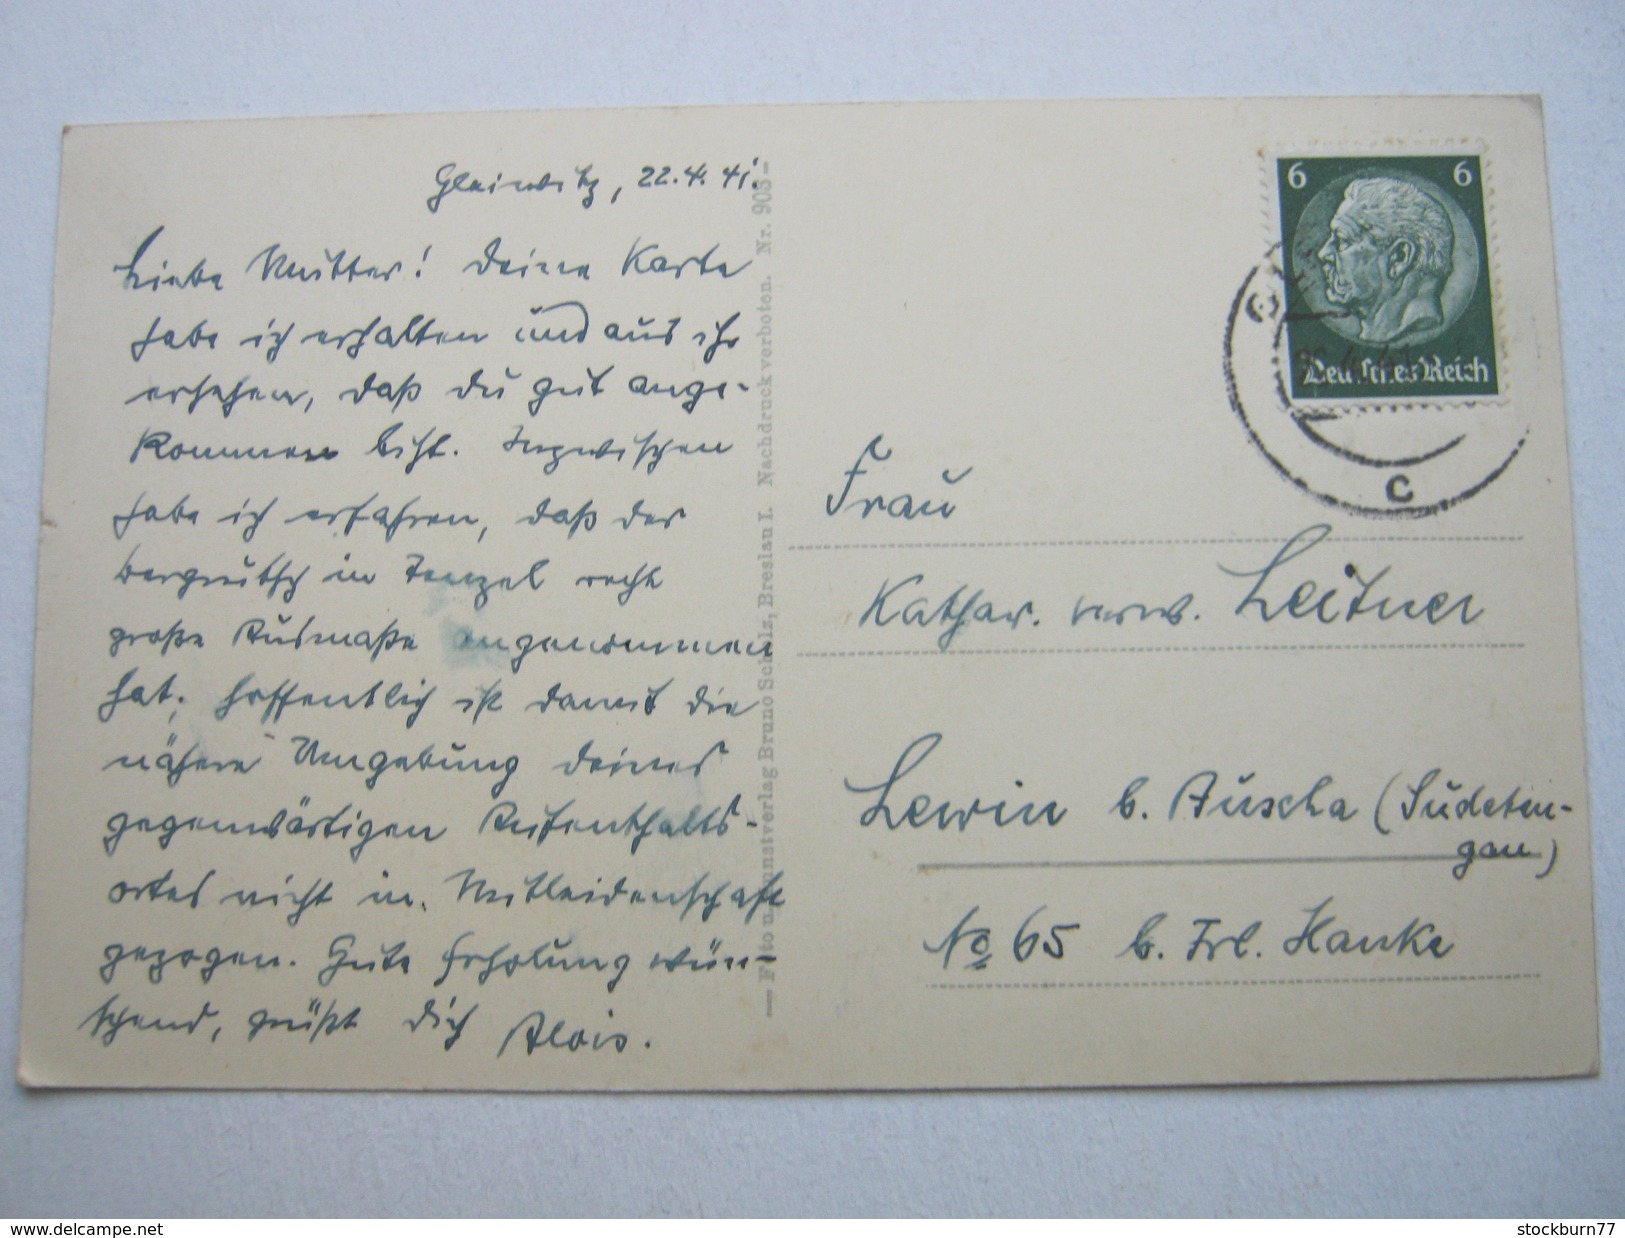 Gleiwitz, 22.4.41.
Liebe Mutter! Deine Karte
habe ich erhalten und aus ihr
ersehen, daß du gut ange-
kommen bist. Inzwischen
habe ich erfahren, daß der
Bergrutsch in Tenzel recht
große Ausmaße angenommen
hat; hoffentlich ist damit die
nähere Umgebung deines
gegenwärtigen Aufenthalts-
ortes nicht in Mitleidenschaft
gezogen. Gute Erholung wün-
schend, grüßt dich Alois.
— Foto u. Kunstverlag Bruno Scholz, Breslau I. Nachdruck verboten. Nr. 903 —
6 6
Deutsches Reich
c
Frau
Kathar. verw. Leitner
Lewin b. Auscha (Sudeten-
gau)
No 65 b. Frl. Hanke
www.delcampe.net
stockburn77